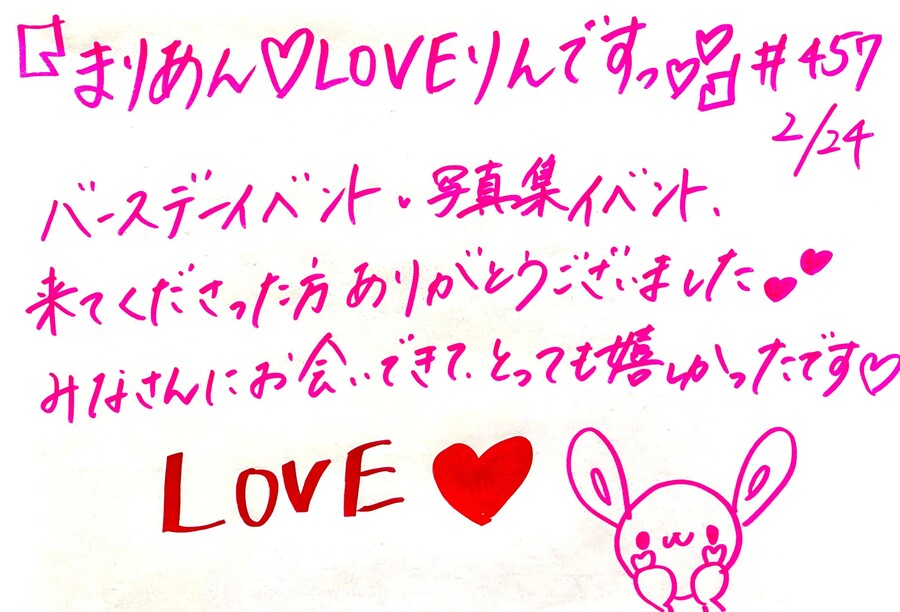 『まりあん♡LOVEりんですっ♡♡』#457
2/24
バースデーイベント・写真集イベント、
来てくださった方ありがとうございました♥♥
みなさんにお会いできて、とっても嬉しかったです♡
LOVE♥